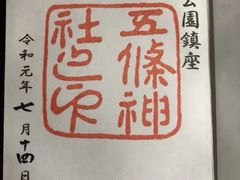 公園鎮座
五條神
社之印
令和元年七月十四日